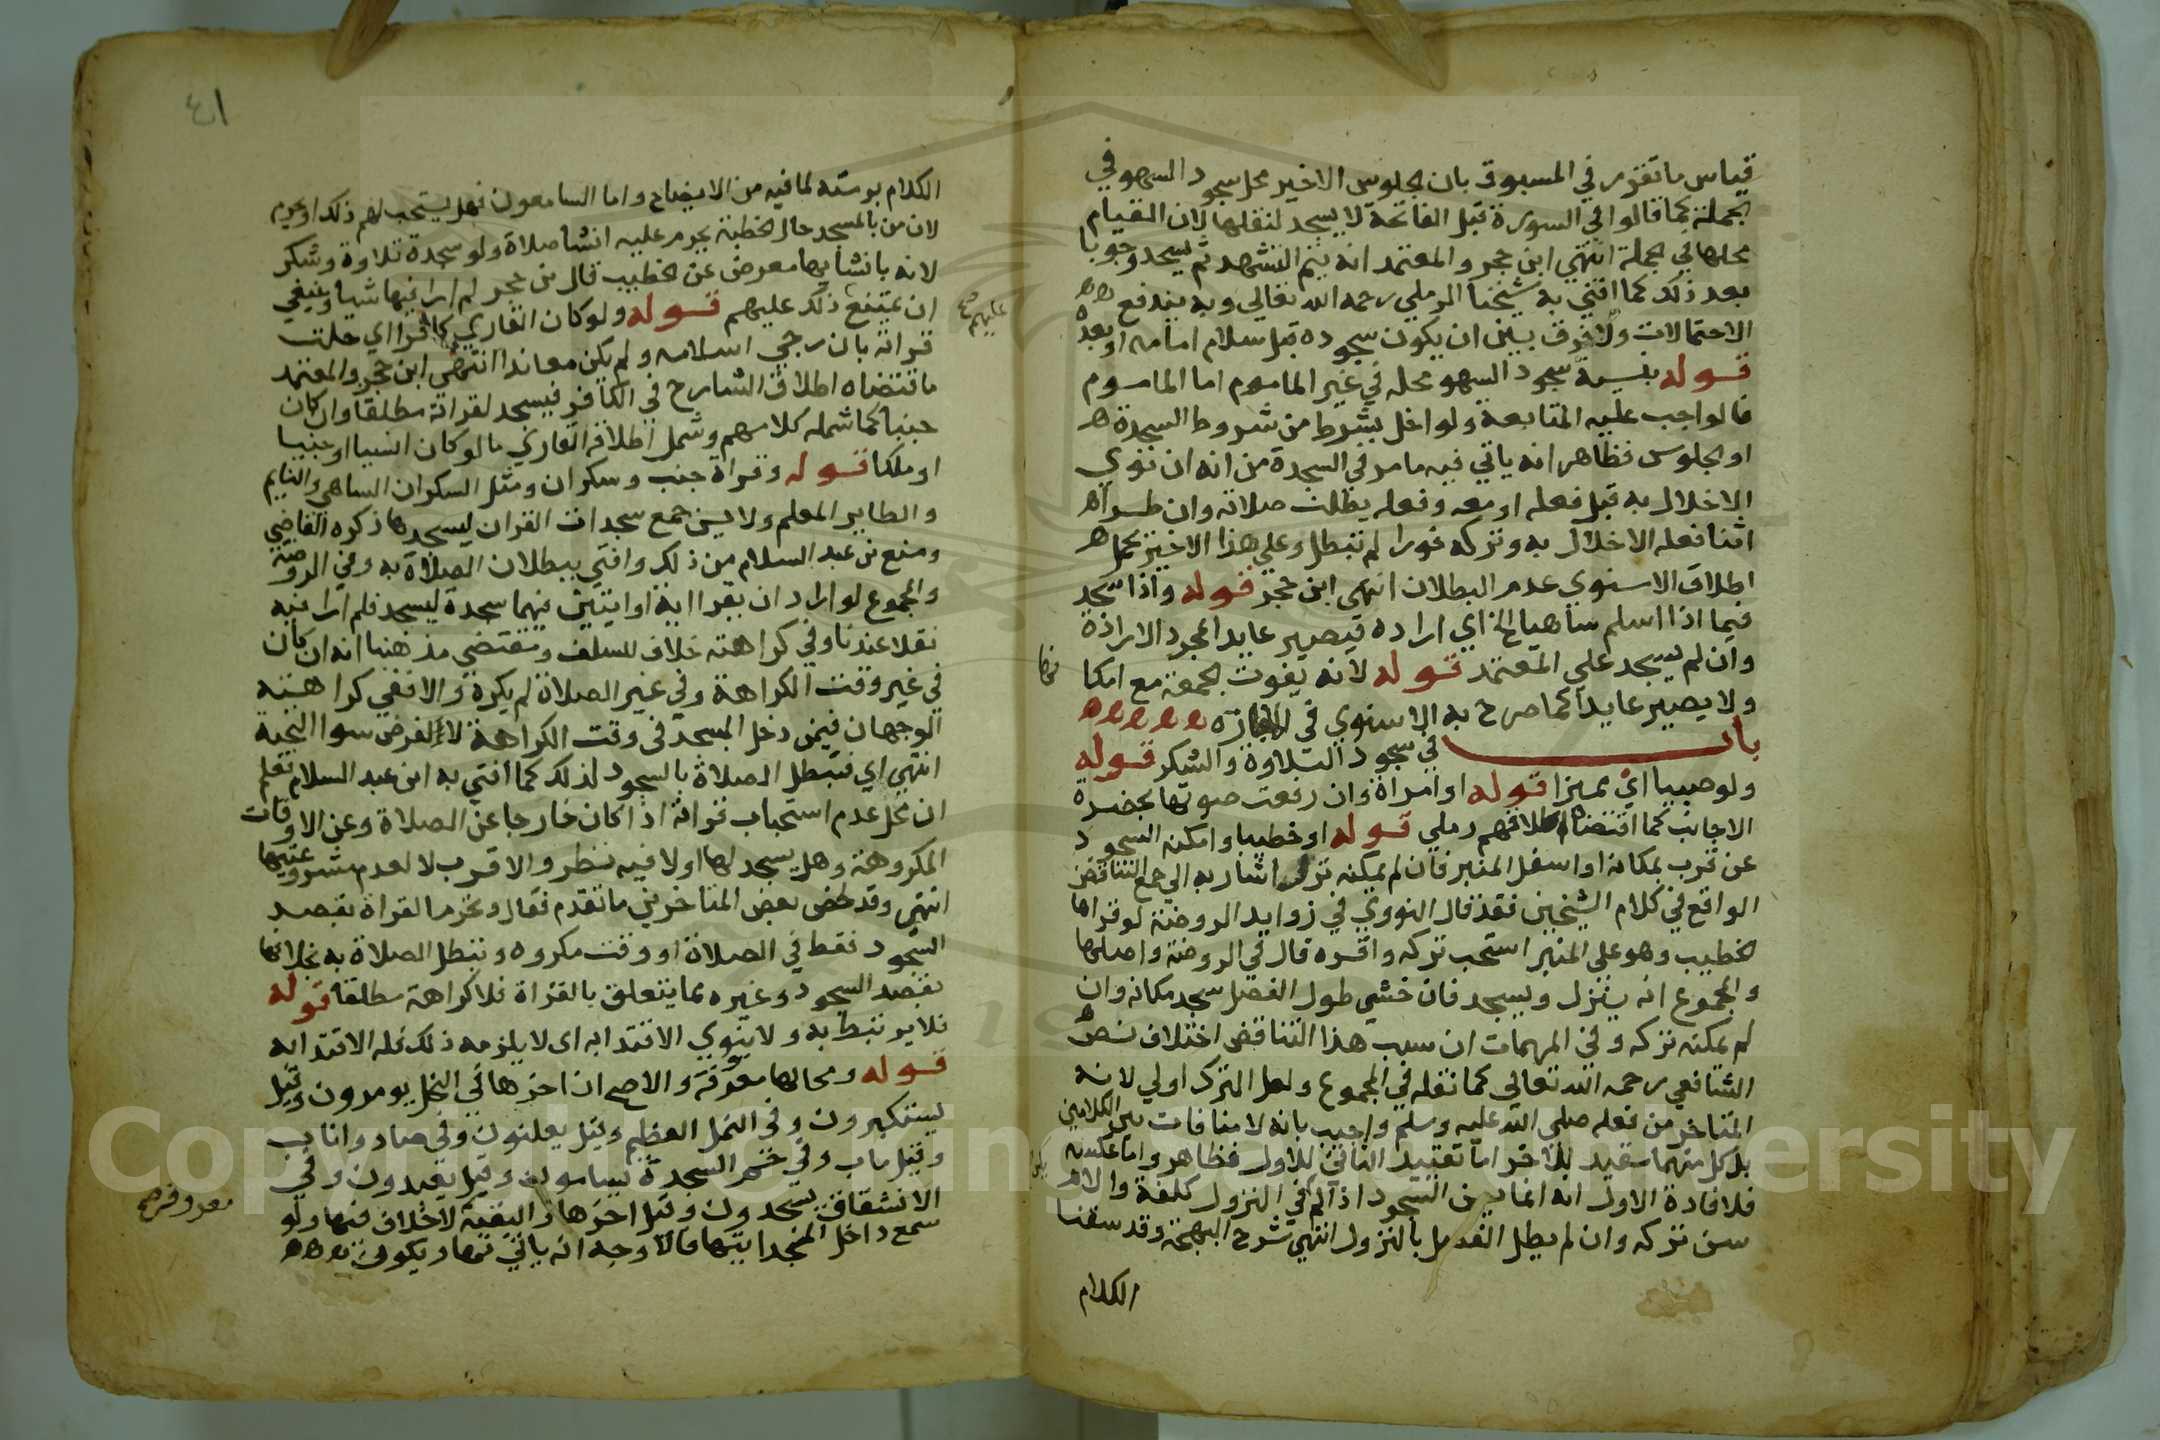 قياس ما تقرر في المسبوق بان الجلوس الاخير محل سجود السهو في
الجملة كما قالوا في السورة قبل الفاتحة لا يسجد لنقلها لان القيام
محلها في الجملة انتهي ابن حجر والمعتمد انه يتم التشهد ثم يسجد وجوبا
بعد ذلك كما افتي به شيخنا الرملي رحمه الله تعالي وبه يندفع
الاحتمالات ولا فرق بين ان يكون سجوده قبل سلام امامه او بعده
قوله بنية سجود السهو محله في غير الماموم اما الماموم
فالواجب عليه المتابعة ولو اخل بشرط من شروط السجدة
او الجلوس فظاهر انه ياتي فيه ما مر في السجدة من انه ان نوي
الاخلال به قبل فعله او معه وفعله بطلت صلاته وان طرا
اثنا فعله الاخلال به وتركه فورا لم تبطل وعلي هذا الاخير يحمل
اطلاق الاسنوي عدم البطلان انتهي ابن حجر قوله واذا سجد
فيما اذا سلم ساهيا الخ اي اراده فيصير عايدا بمجرد الارادة
وان لم يسجد علي المعتمد قوله لانه يفوت الجمعة مع امكا
نها
ولا يصير عايدا كما صرح به الاسنوي في
باب في سجود التلاوة والشكر قوله
ولو صبيا اي مميزا قوله او امراة وان رفعت صوتها بحضرة
الاجانب كما اقتضاه اطلاقهم رملي قوله او خطيبا وامكنه السجود
عن قرب بمكانه او اسفل المنبر فان لم يمكنه ترك اشار به الي جمع التناقض
الواقع في كلام الشيخين فقد قال النووي في زوايد الروضة لو قراها
الخطيب وهو علي المنبر استحب تركه واقره قال في الروضة واصلها
والمجموع انه ينزل ويسجد فان خشي طول الفصل سجد مكانه وان
لم يمكنه تركه وفي المهمات ان سبب هذا التناقض اختلاف نص
الشافعي رحمه الله تعالي كما نقله في المجموع ولعل الترك اولي لانه
المتاخر من فعله صلي الله عليه وسلم واجيب بانه لا منافات بين الكلامين
بل كل منهما مقيد للاخر اما تقييد الثاني للاول فظاهر واما عكسه
فلافادة الاول انه انما يسن السجود اذا لم في النزول كلفة والا
سن تركه وان لم يطل الفصل بالنزول انتهي شرح البهجة وقد سقنا
الكلام
٤١
الكلام برمته لما فيه من الايضاح واما السامعون فهل يستحب لهم ذلك او يحرم
لان من بالمسجد حال الخطبة يحرم عليه انشا صلاة ولو سجدة تلاوة وشكر
لانه بانشايها معرض عن الخطيب قال بن حجر لم ار فيها شيا وينبغي
عليهم صح
ان يمتنع ذلك عليهم قوله ولو كان القاري كافرا اي حلت
قراته بان رجي اسلامه ولم يكن معاندا انتهي ابن حجر والمعتمد
ما اقتضاه اطلاق الشارح في الكافر فيسجد لقراته مطلقا وان كان
جنبا كما شمله كلامهم وشمل اطلاقه القاري ما لو كان انسيا او جنيا
او ملكا قوله وقراة جنب وسكران ومثل السكران الساهي والنايم
والطاير المعلم ولا يسن جمع سجدات القران ليسجدها ذكره القاضي
ومنع بن عبد السلام من ذلك وافتي ببطلان الصلاة به وفي الروضة
والمجموع لو اراد ان يقرا اية او ايتين فيهما سجدة ليسجد فلم ار فيه
نقلا عندنا وفي كراهته خلاف للسلف ومقتضي مذهبنا انه ان كان
في غير وقت الكراهة وفي غير الصلاة لم يكره والا ففي كراهته
الوجهان فيمن دخل المسجد في وقت الكراهة لا لغرض سوا التحية
انتهي اي فتبطل الصلاة بالسجود لذلك كما افتي به ابن عبد السلام نعلم
ان محل عدم استحباب قراته اذا كان خارجا عن الصلاة وعن الاوقات
المكروهة وهل يسجد لها اولا فيه نظر والاقرب لا لعدم مشروعيتها
انتهي وقد لخص بعض المتاخرين ما تقدم فقال وتحرم القراة بقصد
السجود فقط في الصلاة او وقت مكروه وتبطل الصلاة به بخلافها
بقصد السجود وغيره مما يتعلق بالقراة فلا كراهة مطلقا قوله
فلا يرتبط به ولا ينوي الاقتدا به اي لا يلزمه ذلك فله الاقتدا به
قوله ومحالها معروفة والاصح ان اخرها في النحل يومرون وقيل
يستكبرون وفي النمل العظيم وقيل يعلنون وفي صاد واناب
وقيل ماب وفي حم السجدة يسامون وقيل تعبدون وفي
الانشقاق يسجدون وقيل اخرها والبقية لا خلاف فيها ولو
سمع داخل المسجد ايتها فالاوجه انه ياتي بها ويكون